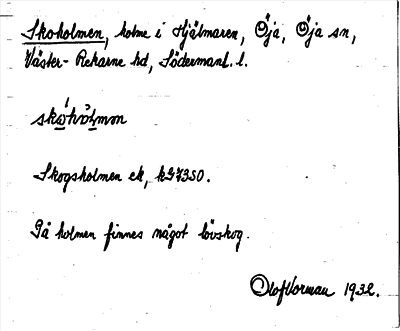 Skoholmen, holme i Hjälmaren, Öja, Öja sn,
Väster-Rekarne hd, Södermanl. l.
skọ́hòlmən
Skogsholmen ek,
På holmen finnes något lövskog.
Olof Norman 1932.